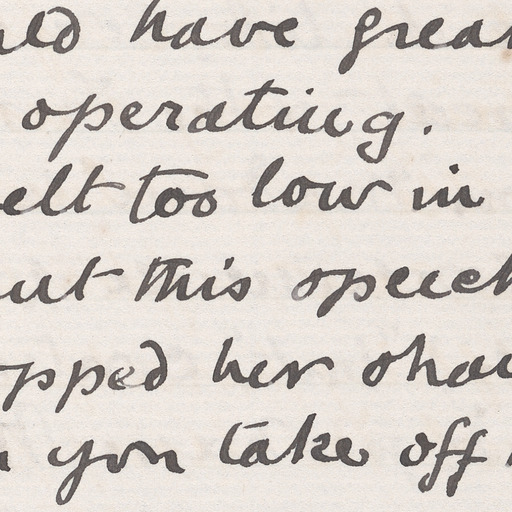 uld have great
operating.
elt too low in
out this speech
opped her shaw
n you take off